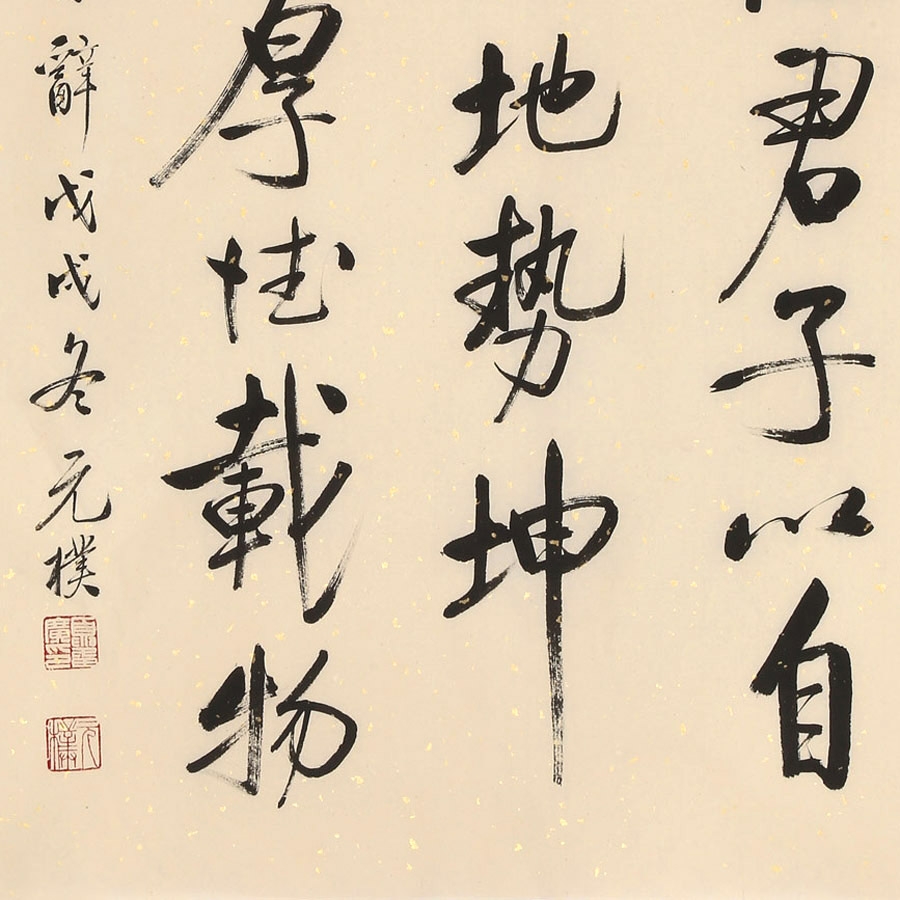 君子以自
地势坤
厚德載物
辭戊戌冬元樸
元樸